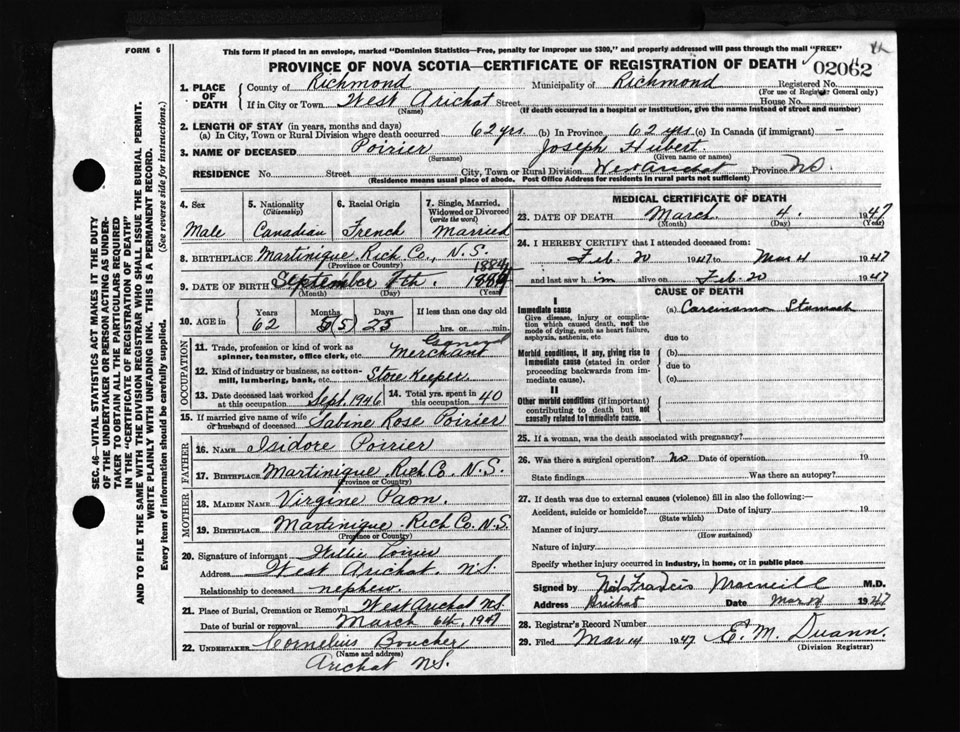 FORM 6
This form if placed in an envelope, marked "Dominion Statistics—Free, penalty for improper use $300," and properly addressed will pass through the mail "FREE"
PROVINCE OF NOVA SCOTIA—CERTIFICATE OF REGISTRATION OF DEATH
02062
1. PLACE OF DEATH County of Richmond Municipality of Richmond Registered No.
(For use of Registrar General only)
If in City or Town West Arichat Street House No.
(Name) (If death occurred in a hospital or institution, give the name instead of street and number)
2. LENGTH OF STAY (in years, months and days)
(a) In City, Town or Rural Division where death occurred 62 yrs. (b) In Province 62 yrs (c) In Canada (if immigrant) —
3. NAME OF DECEASED Poirier Joseph Hubert.
(Surname) (Given name or names)
RESIDENCE No. Street City, Town or Rural Division West Arichat Province N.S.
(Residence means usual place of abode. Post Office Address for residents in rural parts not sufficient)
4. Sex Male
5. Nationality (Citizenship) Canadian
6. Racial Origin French
7. Single, Married, Widowed or Divorced (write the word) Married
8. BIRTHPLACE Martinique Rich Co., N.S.
(Province or Country)
1884
9. DATE OF BIRTH September 9th. 1884
(Month) (Day) (Year)
10. AGE in Years Months Days If less than one day old
62 5 (5) 25 hrs. or min.
OCCUPATION
11. Trade, profession or kind of work as spinner, teamster, office clerk, etc. General Merchant
12. Kind of industry or business, as cotton-mill, lumbering, bank, etc. Store Keeper
13. Date deceased last worked at this occupation Sept. 1946 14. Total yrs. spent in this occupation 40
15. If married give name of wife or husband of deceased Sabine Rose Poirier
FATHER
16. NAME Isidore Poirier
17. BIRTHPLACE Martinique Rich Co. N.S.
(Province or Country)
MOTHER
18. MAIDEN NAME Virgine Paon.
19. BIRTHPLACE Martinique Rich Co. N.S.
(Province or Country)
20. Signature of informant Willie
Address West Arichat. N.S.
Relationship to deceased nephew
21. Place of Burial, Cremation or Removal West Arichat N.S
Date of burial or removal March 6th, 1947
22. UNDERTAKER Cornelius Boucher
(Name and address)
Arichat N.S.
MEDICAL CERTIFICATE OF DEATH
23. DATE OF DEATH March 4. 1947
(Month) (Day) (Year)
24. I HEREBY CERTIFY that I attended deceased from:
Feb. 20 1947 to Mar 4 1947
and last saw him alive on Feb. 20 1947
CAUSE OF DEATH
I
Immediate cause
Give disease, injury or complication which caused death, not the mode of dying, such as heart failure, asphyxia, asthenia, etc
(a) Stomach
due to
Morbid conditions, if any, giving rise to immediate cause (stated in order proceeding backwards from immediate cause).
(b)
due to
(c)
II
Other morbid conditions (if important) contributing to death but not causally related to immediate cause.
25. If a woman, was the death associated with pregnancy?
26. Was there a surgical operation? No Date of operation 19
State findings Was there an autopsy?
27. If death was due to external causes (violence) fill in also the following:—
Accident, suicide or homicide? Date of injury 19
(State which)
Manner of injury
(How sustained)
Nature of injury
Specify whether injury occurred in industry, in home, or in public place
Signed by Francis Macneill M.D.
Address Arichat Date Mar 1947
28. Registrar's Record Number
29. Filed Mar 14 1947 E. M. Duann.
(Division Registrar)
SEC. 46—VITAL STATISTICS ACT MAKES IT THE DUTY
OF THE UNDERTAKER OR PERSON ACTING AS UNDER-
TAKER TO OBTAIN ALL THE PARTICULARS REQUIRED
IN THE "CERTIFICATE OF REGISTRATION OF DEATH"
AND TO FILE THE SAME WITH THE DIVISION REGISTRAR WHO SHALL ISSUE THE BURIAL PERMIT.
WRITE PLAINLY WITH UNFADING INK. THIS IS A PERMANENT RECORD.
Every item of information should be carefully supplied. (See reverse side for instructions.)